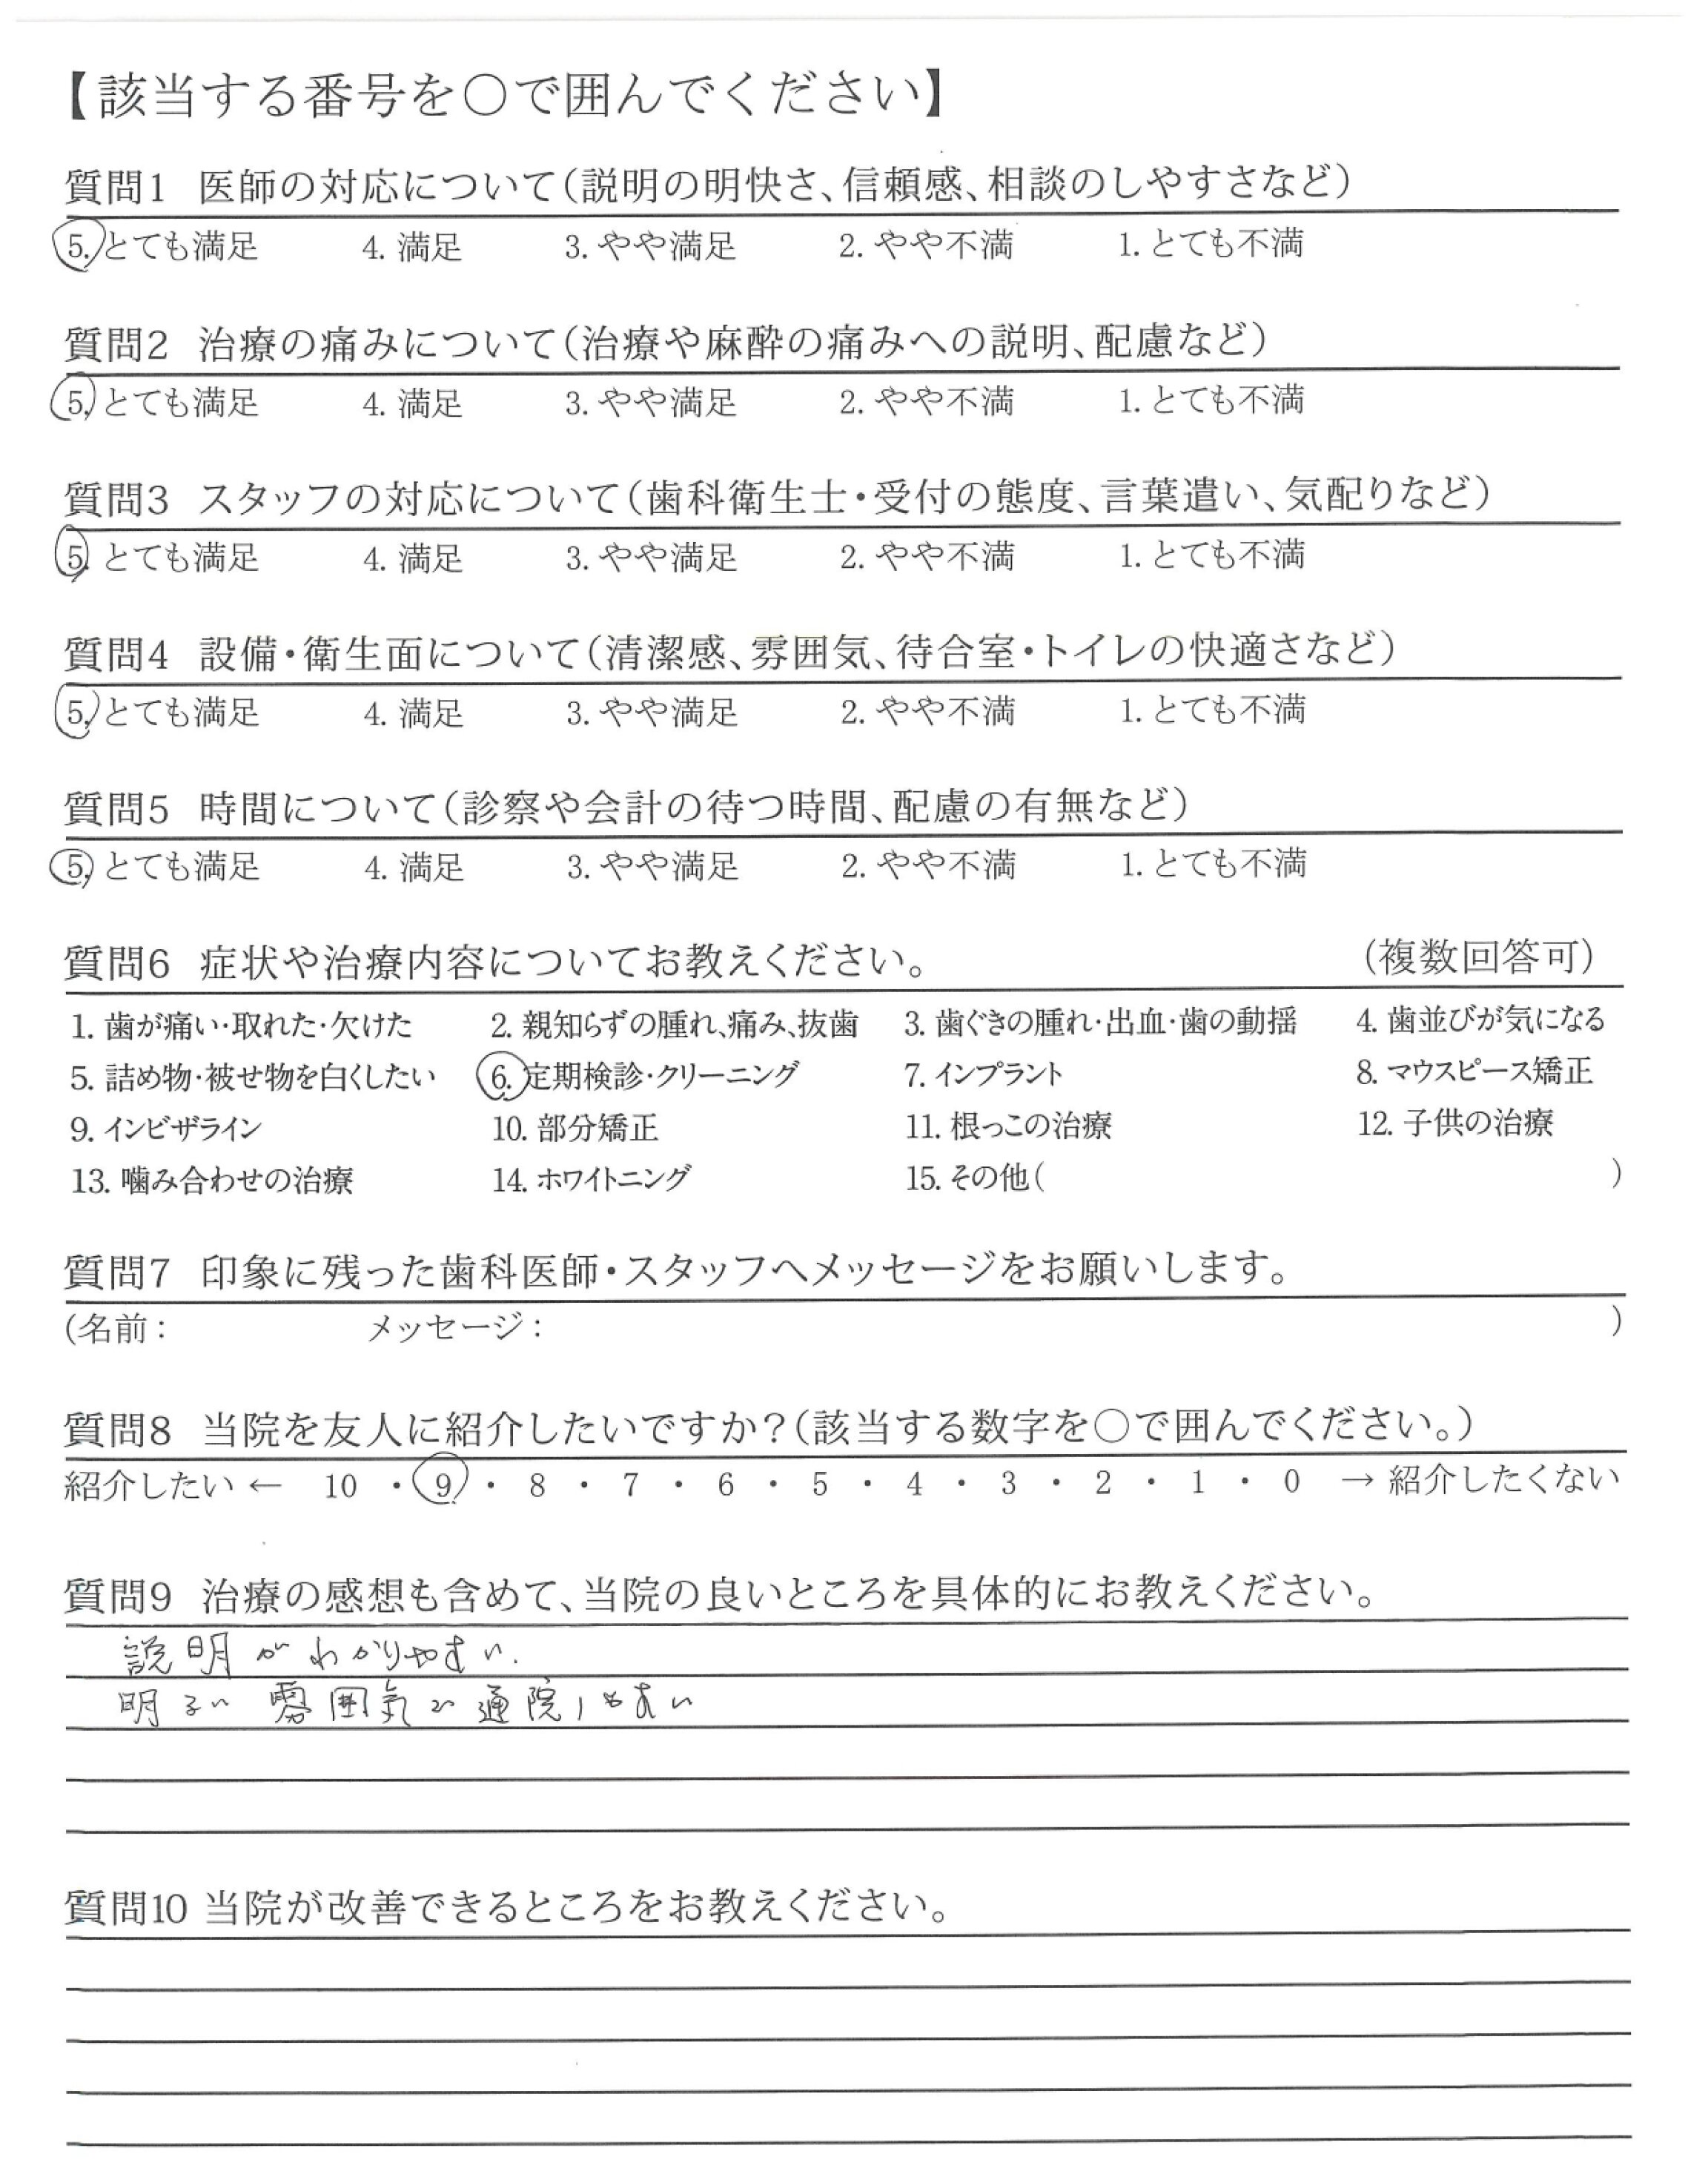 【該当する番号を○で囲んでください】
質問1 医師の対応について(説明の明快さ、信頼感、相談のしやすさなど)
5. とても満足 4. 満足 3. やや満足 2. やや不満 1. とても不満
質問2 治療の痛みについて(治療や麻酔の痛みへの説明、配慮など)
5. とても満足 4. 満足 3. やや満足 2. やや不満 1. とても不満
質問3 スタッフの対応について(歯科衛生士・受付の態度、言葉遣い、気配りなど)
5. とても満足 4. 満足 3. やや満足 2. やや不満 1. とても不満
質問4 設備・衛生面について(清潔感、雰囲気、待合室・トイレの快適さなど)
5. とても満足 4. 満足 3. やや満足 2. やや不満 1. とても不満
質問5 時間について(診察や会計の待つ時間、配慮の有無など)
5. とても満足 4. 満足 3. やや満足 2. やや不満 1. とても不満
質問6 症状や治療内容についてお教えください。 (複数回答可)
1. 歯が痛い・取れた・欠けた 2. 親知らずの腫れ、痛み、抜歯 3. 歯ぐきの腫れ・出血・歯の動揺 4. 歯並びが気になる
5. 詰め物・被せ物を白くしたい 6. 定期検診・クリーニング 7. インプラント 8. マウスピース矯正
9. インビザライン 10. 部分矯正 11. 根っこの治療 12. 子供の治療
13. 噛み合わせの治療 14. ホワイトニング 15. その他( )
質問7 印象に残った歯科医師・スタッフへメッセージをお願いします。
(名前: メッセージ: )
質問8 当院を友人に紹介したいですか?(該当する数字を○で囲んでください。)
紹介したい ← 10 ・ 9 ・ 8 ・ 7 ・ 6 ・ 5 ・ 4 ・ 3 ・ 2 ・ 1 ・ 0 → 紹介したくない
質問9 治療の感想も含めて、当院の良いところを具体的にお教えください。
説明がわかりやすい.
明るい雰囲気で通院しやすい
質問10 当院が改善できるところをお教えください。